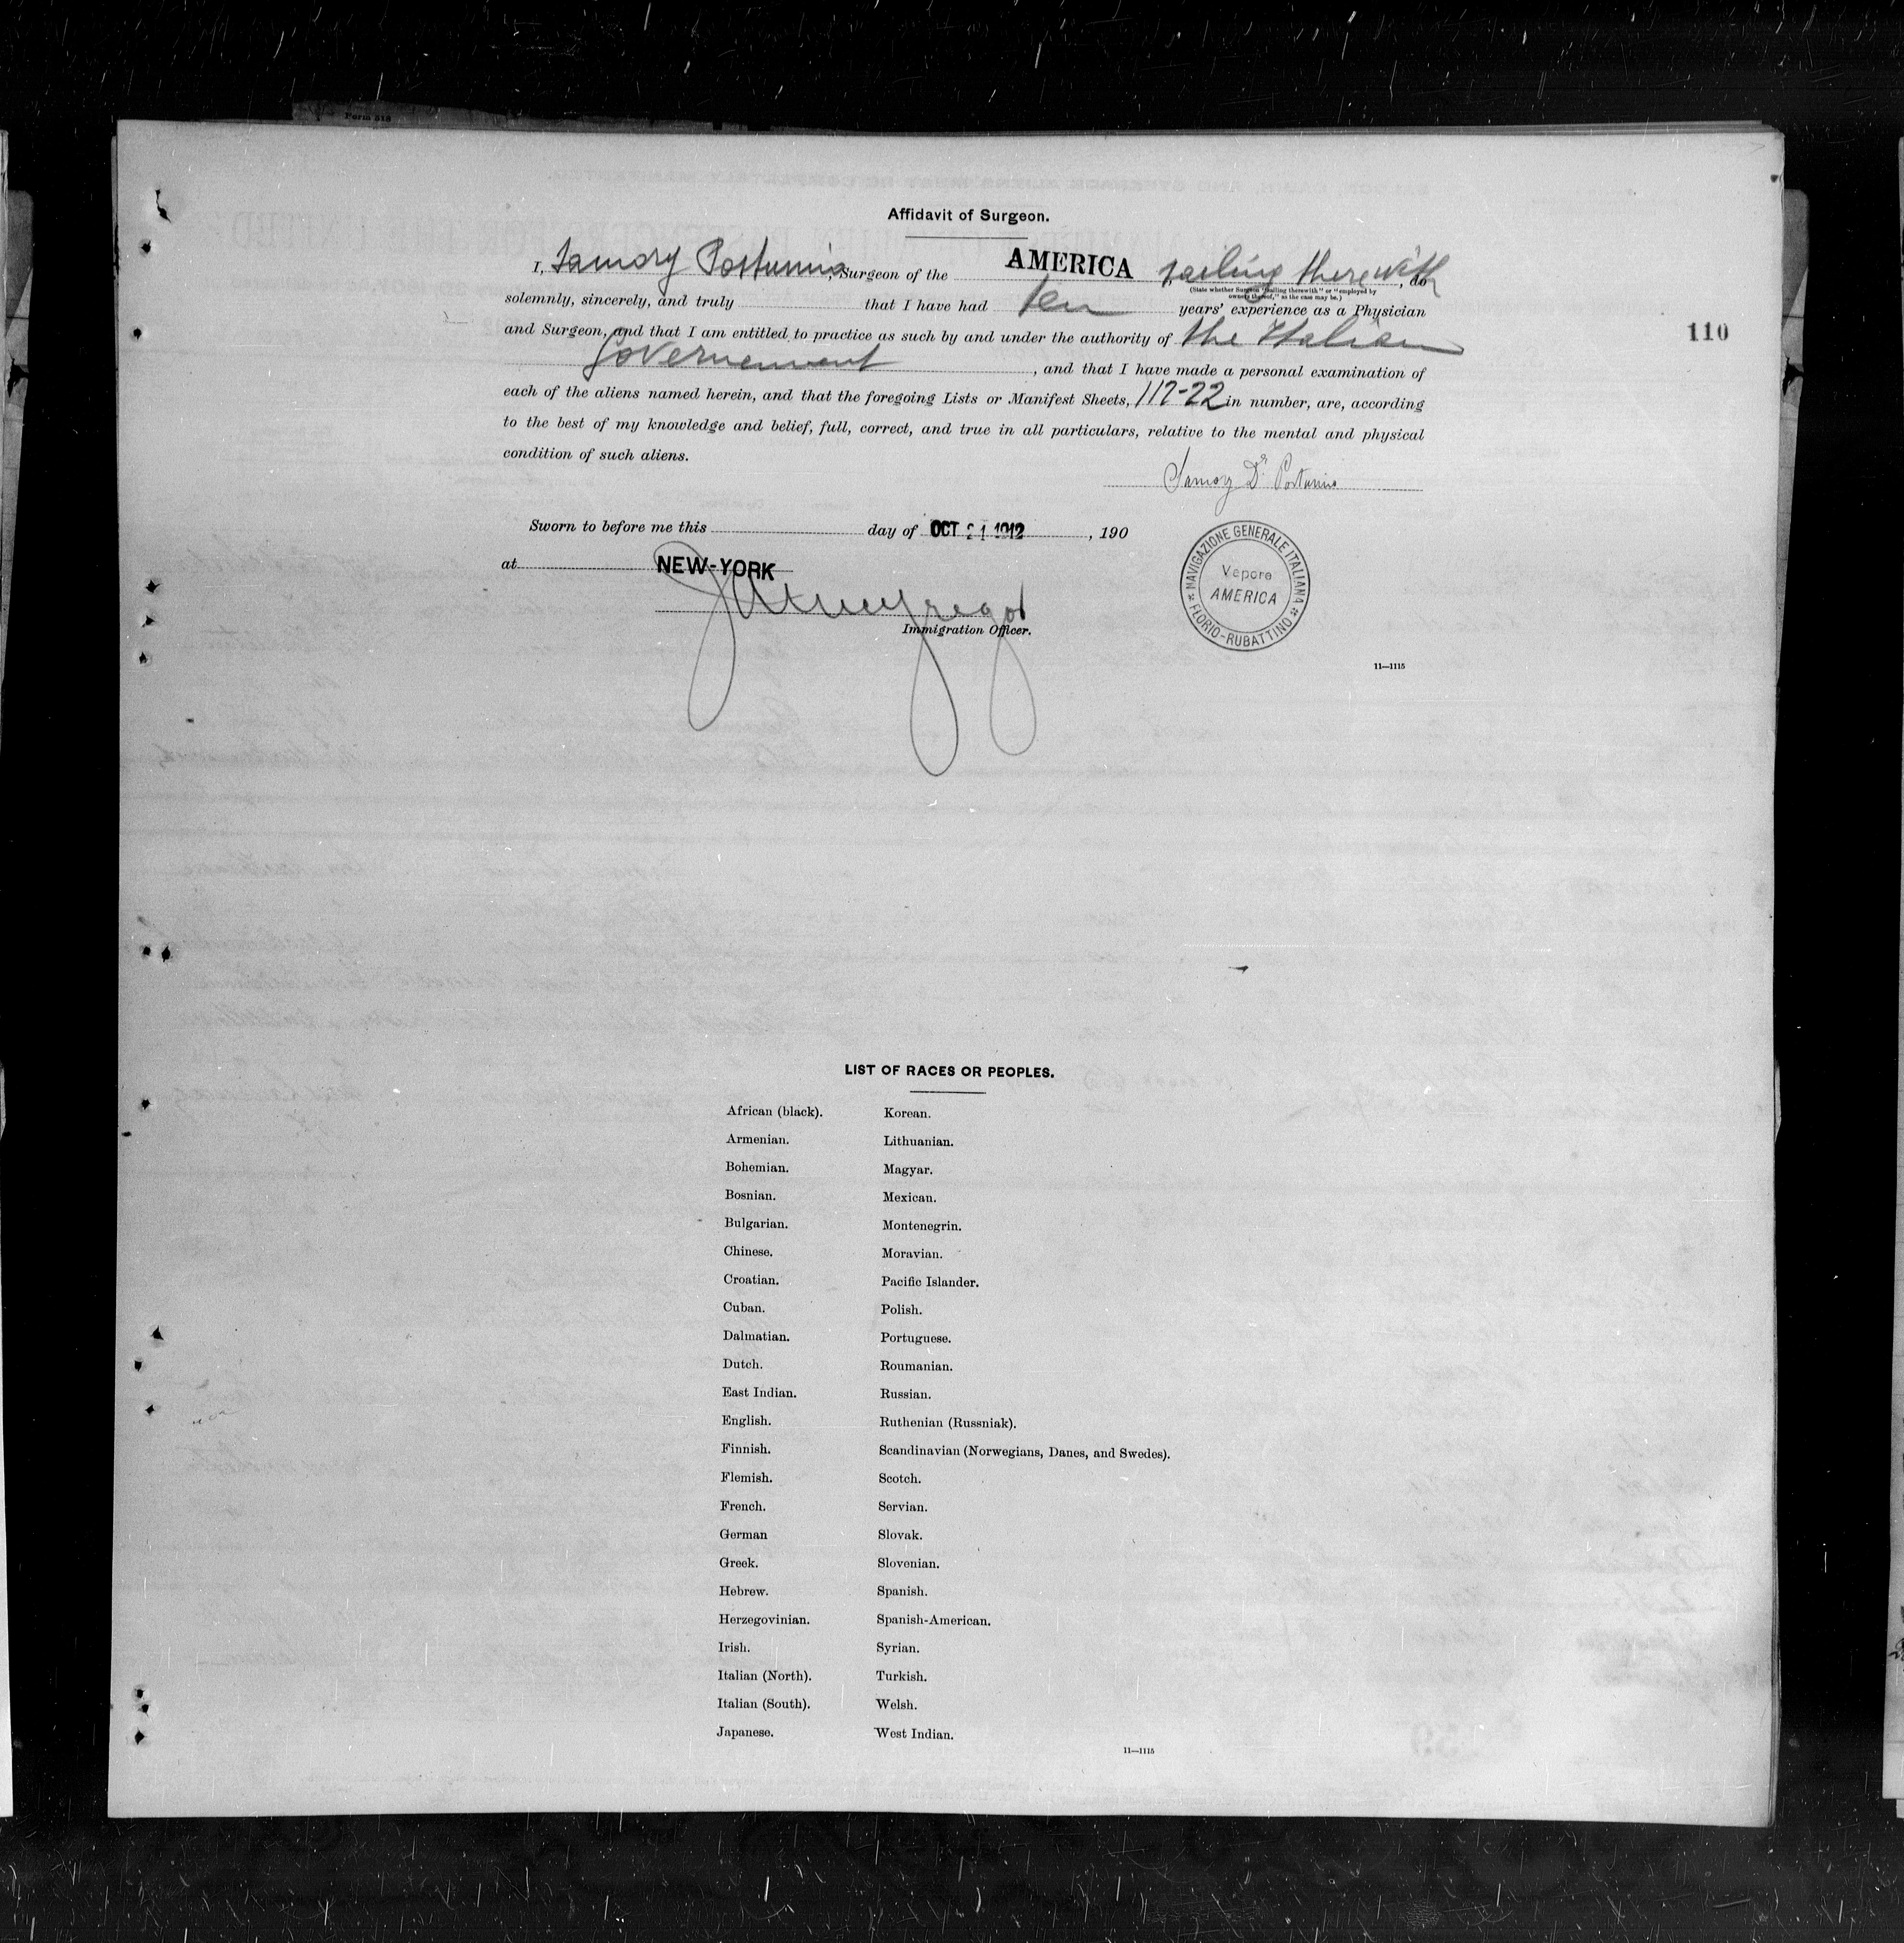 Form 518
Affidavit of Surgeon.
I, Samory Postumio, Surgeon of the AMERICA, sailing therewith, do
(State whether Surgeon "sailing therewith" or "employed by
owners thereof," as the case may be.)
solemnly, sincerely, and truly that I have had ten years' experience as a Physician
and Surgeon, and that I am entitled to practice as such by and under the authority of the Italian
110
Governement, and that I have made a personal examination of
each of the aliens named herein, and that the foregoing Lists or Manifest Sheets, 117-22 in number, are, according
to the best of my knowledge and belief, full, correct, and true in all particulars, relative to the mental and physical
condition of such aliens.
Samory Dr. Postumio
Sworn to before me this day of OCT 21 1912, 190
at NEW-YORK
Immigration Officer.
NAVIGAZIONE GENERALE ITALIANA
Vapore
AMERICA
FLORIO-RUBATTINO
11—1115
LIST OF RACES OR PEOPLES.
African (black).
Armenian.
Bohemian.
Bosnian.
Bulgarian.
Chinese.
Croatian.
Cuban.
Dalmatian.
Dutch.
East Indian.
English.
Finnish.
Flemish.
French.
German
Greek.
Hebrew.
Herzegovinian.
Irish.
Italian (North).
Italian (South).
Japanese.
Korean.
Lithuanian.
Magyar.
Mexican.
Montenegrin.
Moravian.
Pacific Islander.
Polish.
Portuguese.
Roumanian.
Russian.
Ruthenian (Russniak).
Scandinavian (Norwegians, Danes, and Swedes).
Scotch.
Servian.
Slovak.
Slovenian.
Spanish.
Spanish-American.
Syrian.
Turkish.
Welsh.
West Indian.
11—1115